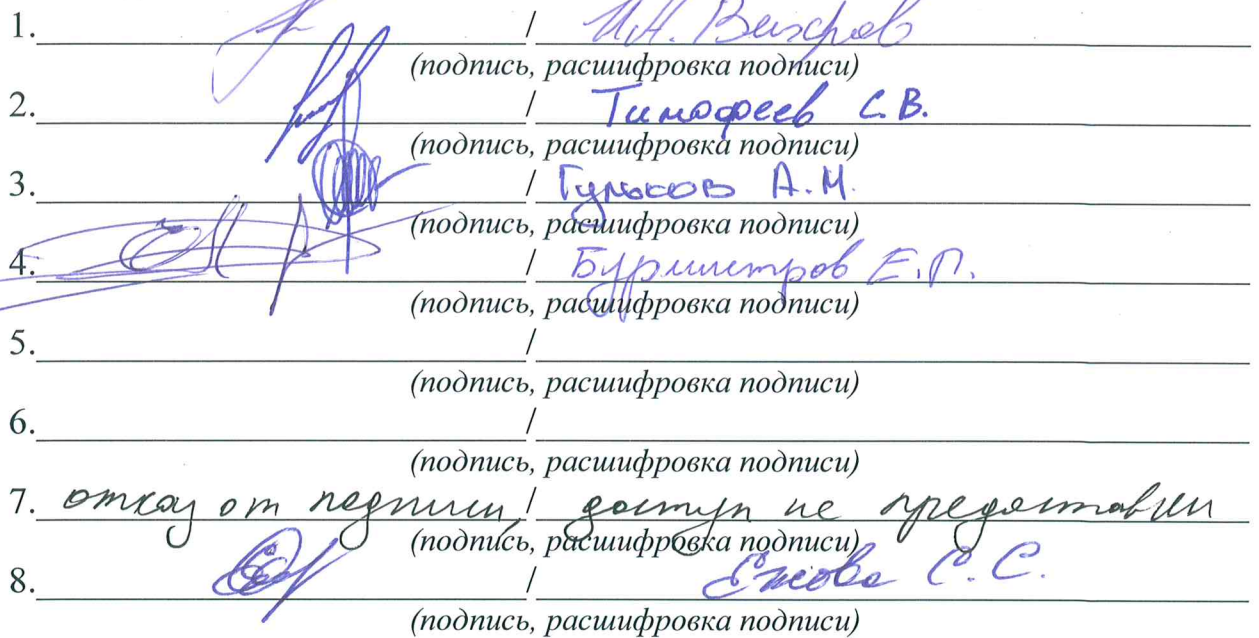 1. / И.А. Вихров
(подпись, расшифровка подписи)
2. / Тимофеев С.В.
(подпись, расшифровка подписи)
3. / Гульков А.М.
(подпись, расшифровка подписи)
4. / Бурмистров Е.П.
(подпись, расшифровка подписи)
5. /
(подпись, расшифровка подписи)
6. /
(подпись, расшифровка подписи)
7. отказ от подписи, / доступ не предоставлен
(подпись, расшифровка подписи)
8. / Ежова С.С.
(подпись, расшифровка подписи)